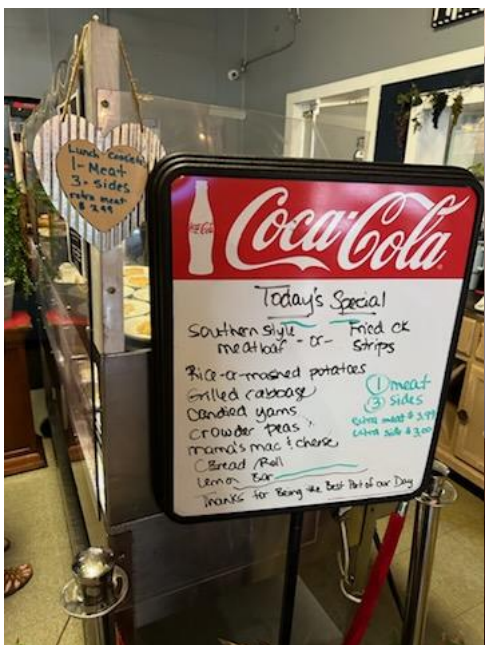 Lunch - consists
1- Meat
3- sides
extra meat
$ 2.99
Coca-Cola
Coca-Cola
Today's Special
Southern style meatloaf - or - Fried ck strips
Rice-or-mashed potatoes
Grilled cabbage
Candied yams
Crowder peas
mama's mac & cheese
CBread /Roll
Lemon Bar
1 meat
3 sides
extra meat $3.99
extra side $3.00
Thanks for Being the Best Part of our Day